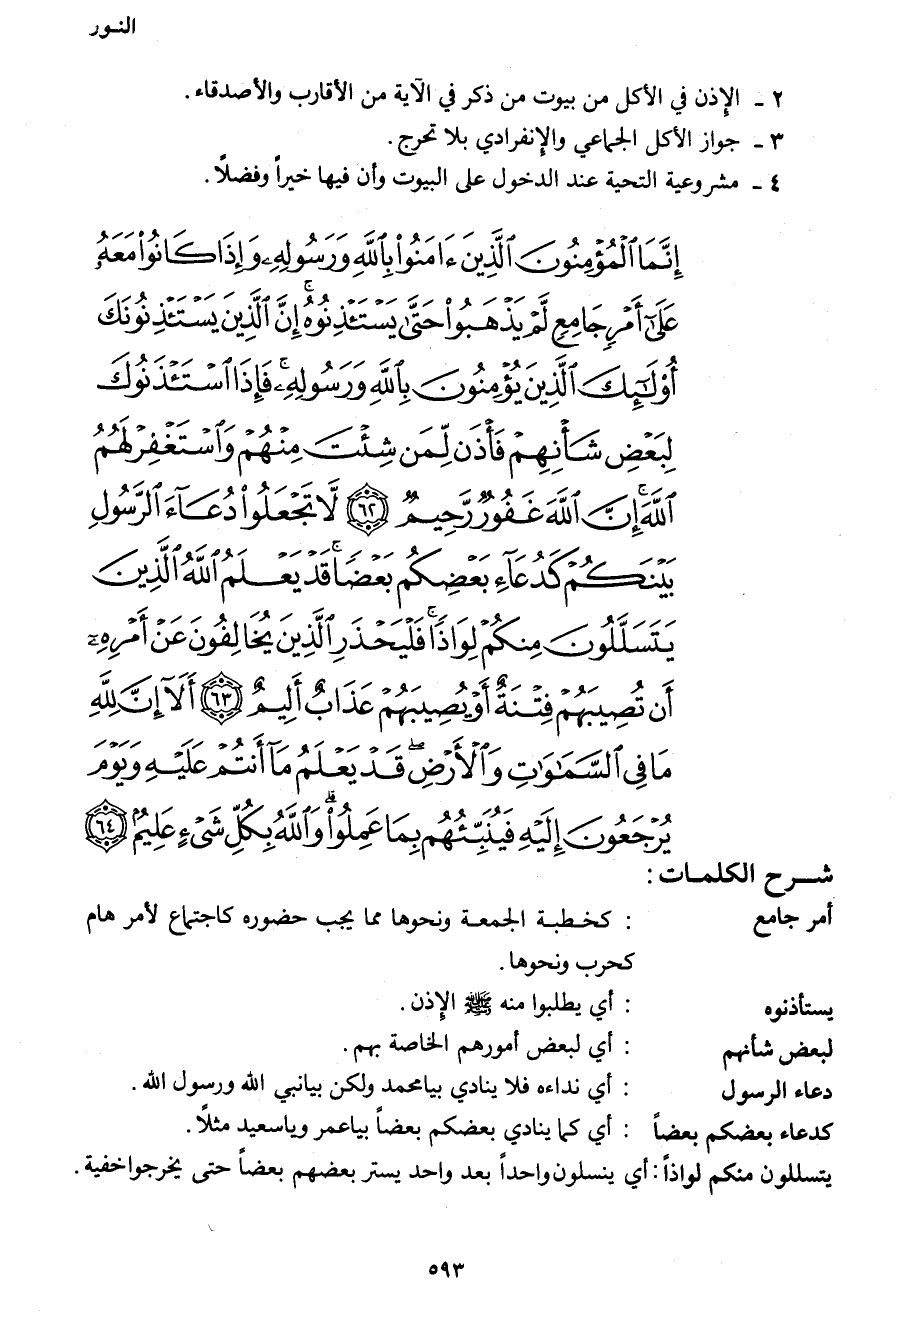 النور
٢ ـ الإذن في الأكل من بيوت من ذكر في الآية من الأقارب والأصدقاء .
٣ ـ جواز الأكل الجماعي والإنفرادي بلا تحرج .
٤ ـ مشروعية التحية عند الدخول على البيوت وأن فيها خيراً وفضلاً .
إِنَّمَا ٱلْمُؤْمِنُونَ ٱلَّذِينَ ءَامَنُوا۟ بِٱللَّهِ وَرَسُولِهِۦ وَإِذَا كَانُوا۟ مَعَهُۥ
عَلَىٰٓ أَمْرٍ جَامِعٍ لَّمْ يَذْهَبُوا۟ حَتَّىٰ يَسْتَـْٔذِنُوهُ ۚ إِنَّ ٱلَّذِينَ يَسْتَـْٔذِنُونَكَ
أُو۟لَـٰٓئِكَ ٱلَّذِينَ يُؤْمِنُونَ بِٱللَّهِ وَرَسُولِهِۦ ۚ فَإِذَا ٱسْتَـْٔذَنُوكَ
لِبَعْضِ شَأْنِهِمْ فَأْذَن لِّمَن شِئْتَ مِنْهُمْ وَٱسْتَغْفِرْ لَهُمُ
ٱللَّهَ ۚ إِنَّ ٱللَّهَ غَفُورٌ رَّحِيمٌ ٦٢ لَّا تَجْعَلُوا۟ دُعَآءَ ٱلرَّسُولِ
بَيْنَكُمْ كَدُعَآءِ بَعْضِكُم بَعْضًا ۚ قَدْ يَعْلَمُ ٱللَّهُ ٱلَّذِينَ
يَتَسَلَّلُونَ مِنكُمْ لِوَاذًا ۚ فَلْيَحْذَرِ ٱلَّذِينَ يُخَالِفُونَ عَنْ أَمْرِهِۦٓ
أَن تُصِيبَهُمْ فِتْنَةٌ أَوْ يُصِيبَهُمْ عَذَابٌ أَلِيمٌ ٦٣ أَلَآ إِنَّ لِلَّهِ
مَا فِى ٱلسَّمَـٰوَٰتِ وَٱلْأَرْضِ ۖ قَدْ يَعْلَمُ مَآ أَنتُمْ عَلَيْهِ وَيَوْمَ
يُرْجَعُونَ إِلَيْهِ فَيُنَبِّئُهُم بِمَا عَمِلُوا۟ ۗ وَٱللَّهُ بِكُلِّ شَىْءٍ عَلِيمٌۢ ٦٤
شـرح الكلمـات :
أمر جامع : كخطبة الجمعة ونحوها مما يجب حضوره كاجتماع لأمر هام
كحرب ونحوها .
يستأذنوه : أي يطلبوا منه ﷺ الإذن .
لبعض شأنهم : أي لبعض أمورهم الخاصة بهم .
دعاء الرسول : أي نداءه فلا ينادي بيامحمد ولكن بيانبي الله ورسول الله .
كدعاء بعضكم بعضاً : أي كما ينادي بعضكم بعضاً بياعمر وياسعيد مثلاً .
يتسللون منكم لواذاً : أي ينسلون واحداً بعد واحد يستر بعضهم بعضاً حتى يخرجوا خفية .
٥٩٣